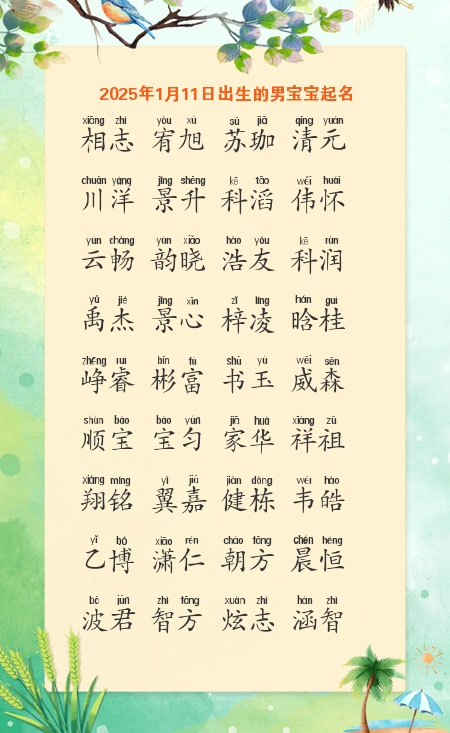 2025年1月11日出生的男宝宝起名
xiāng zhì yòu xù sū jiā qīng yuán
相志 宥旭 苏珈 清元
chuān yáng jǐng shēng kē tāo wěi huái
川洋 景升 科滔 伟怀
yún chàng yùn xiǎo hào yǒu kē rùn
云畅 韵晓 浩友 科润
yǔ jié jǐng xīn zǐ líng hán guì
禹杰 景心 梓凌 晗桂
zhēng ruì bīn fù shū yù wēi sēn
峥睿 彬富 书玉 威森
shùn bǎo bǎo yún jiā huá xiáng zǔ
顺宝 宝匀 家华 祥祖
xiáng míng yì jiā jiàn dòng wéi hào
翔铭 翼嘉 健栋 韦皓
yǐ bó xiāo rén cháo fāng chén héng
乙博 潇仁 朝方 晨恒
bō jūn zhì fāng xuàn zhì hán zhì
波君 智方 炫志 涵智